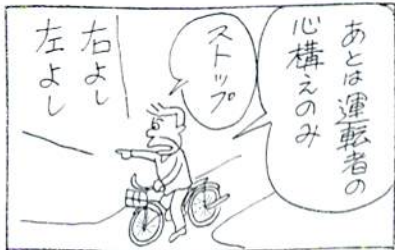 あとは運転者の
心構えのみ
ストップ
右よし
左よし